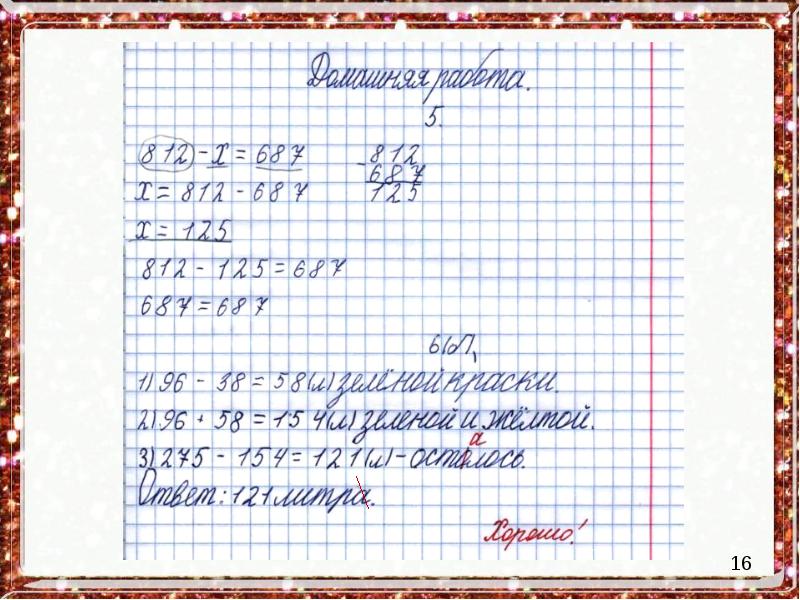 Домашняя работа.
5.
812 - х = 687
х = 812 - 687
х = 125
812 - 125 = 687
687 = 687
- 812
687
125
6(б)
1) 96 - 38 = 58(л) зелёной краски.
2) 96 + 58 = 154(л) зеленой и жёлтой.
а
3) 275 - 154 = 121(л) - осталось.
Ответ: 121 литра.
Хорошо!
16